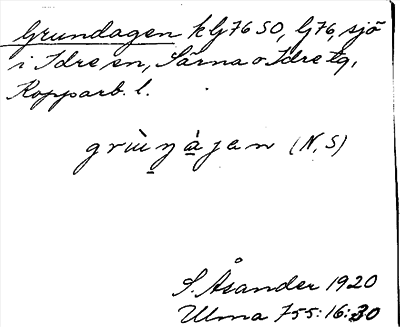 Grundagen kG76 SO, G76, sjö
i Idre sn, Särna o Idre tg,
Kopparb. l.
grùŋàjen (N, S)
S. Åsander 1920
Ulma 755:16:30